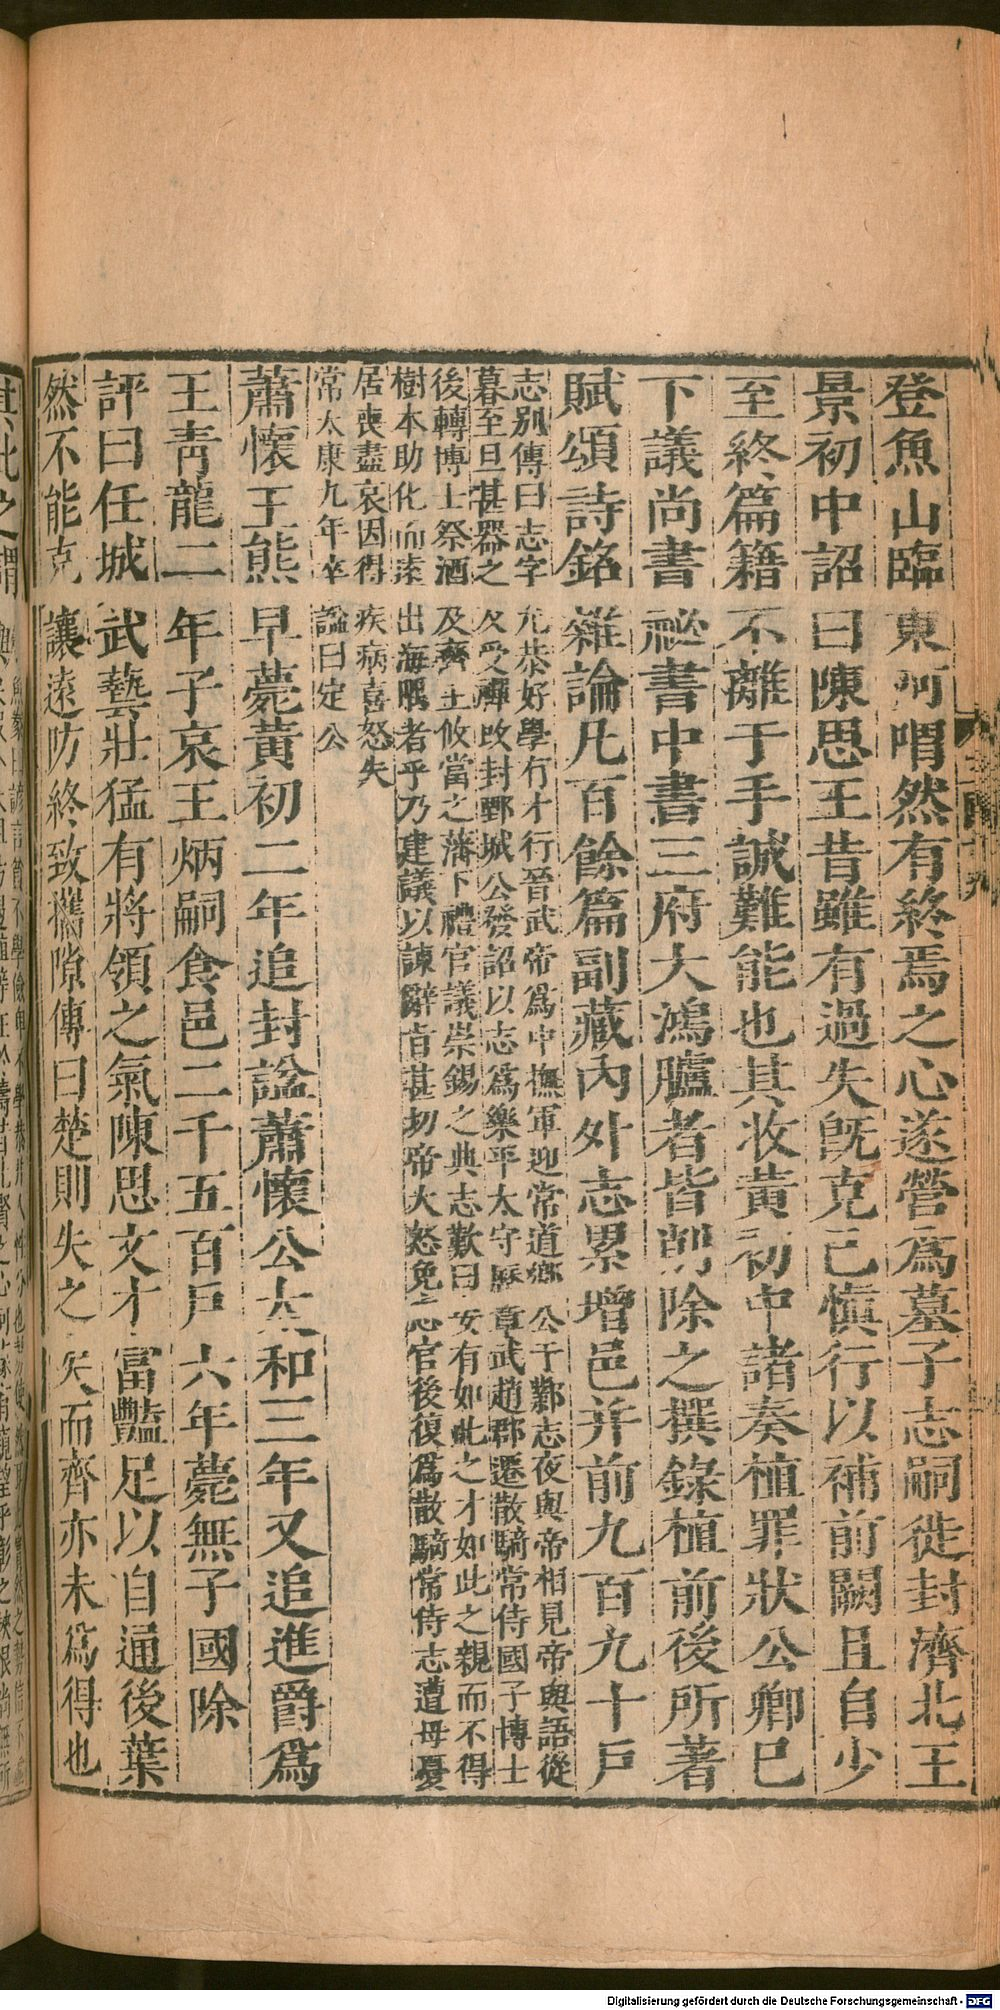 登魚山臨東阿喟然有終焉之心遂營爲墓子志嗣徙封濟北王
景初中詔曰陳思王昔雖有過失旣克己愼行以補前闕且自少
至終篇籍不離于手誠難能也其收黃初中諸奏植罪狀公卿已
下議尚書祕書中書三府大鴻臚者皆削除之撰錄植前後所著
賦頌詩銘雜論凡百餘篇副藏內外志累增邑并前九百九十戸
志別傳曰志字允恭好學有才行晉武帝爲中撫軍迎常道鄉公于鄴志夜與帝相見帝與語從
暮至旦甚器之及受禪改封鄄城公發詔以志爲樂平太守歷章武趙郡遷散騎常侍國子博士
後轉博士祭酒及齊王攸當之藩下禮官議崇錫之典志歎曰安有如此之才如此之親而不得
樹本助化而遠出海隅者乎乃建議以諫辭旨甚切帝大怒免志官後復爲散騎常侍志遭母憂
居喪盡哀因得疾病喜怒失
常太康九年卒謚曰定公
蕭懷王熊早薨黃初二年追封謚蕭懷公太和三年又追進爵爲
王靑龍二年子哀王炳嗣食邑二千五百戸六年薨無子國除
評曰任城武藝壯猛有將領之氣陳思文才富豔足以自通後葉
然不能克讓遠防終致攜隙傳曰楚則失之矣而齊亦未爲得也
其此之謂
Digitalisierung gefördert durch die Deutsche Forschungsgemeinschaft - DFG